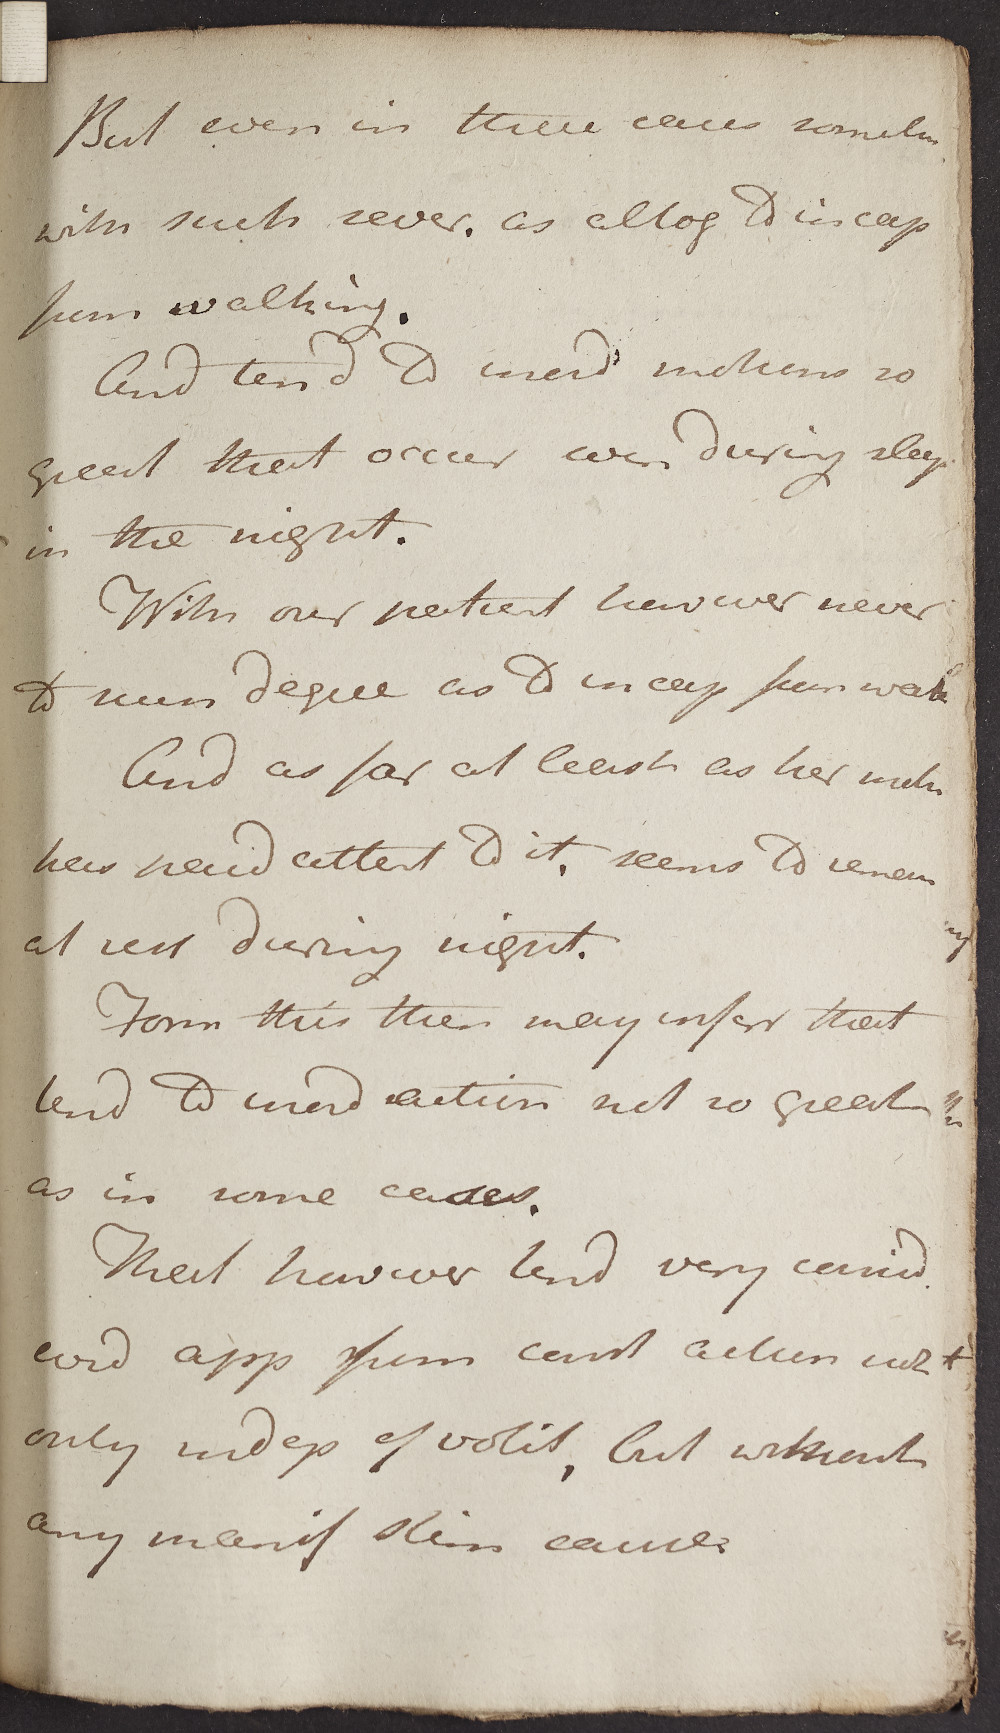 But even in these cases sometim
with such sever. as altog to incap
from walking.
And tend to inord motions so
great that occur even during sleep
in the night.
With our patient however never
to such degree as to incap from walk
And as far at least as her moth
has paid attent to it, seems to remain
at rest during night.
From this then may infer that
tend to inord action not so great
as in some cases.
That however tend very consid
evid app from const action not
only indep of volit, but without
any manif stim cause.